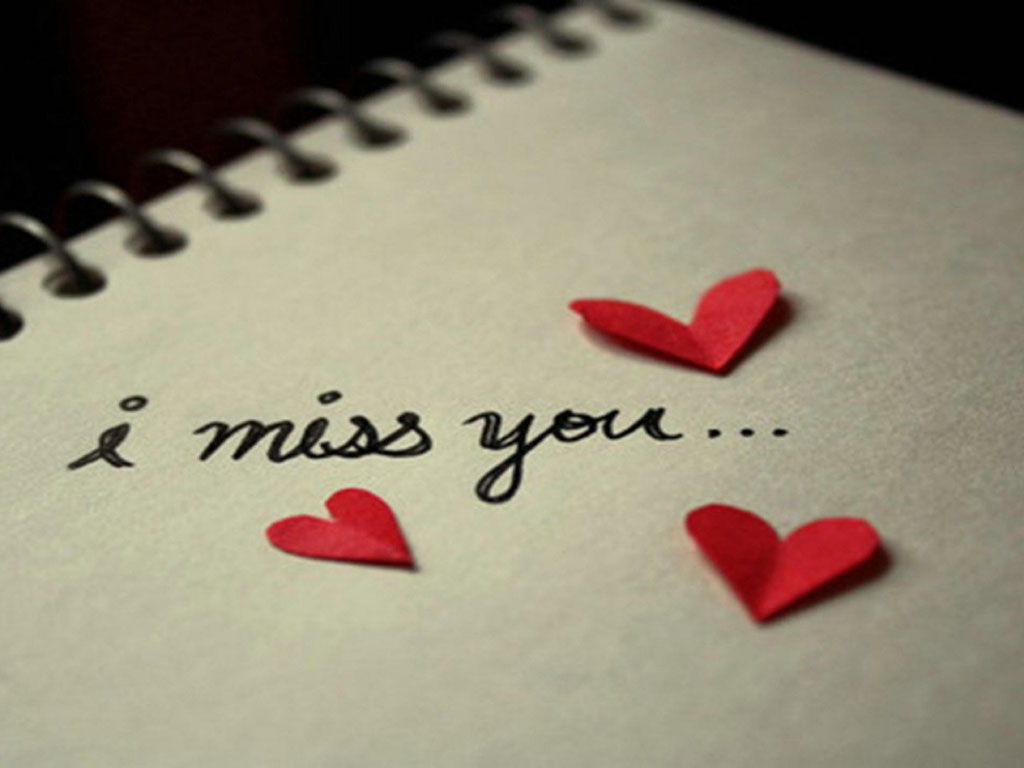 i miss you...